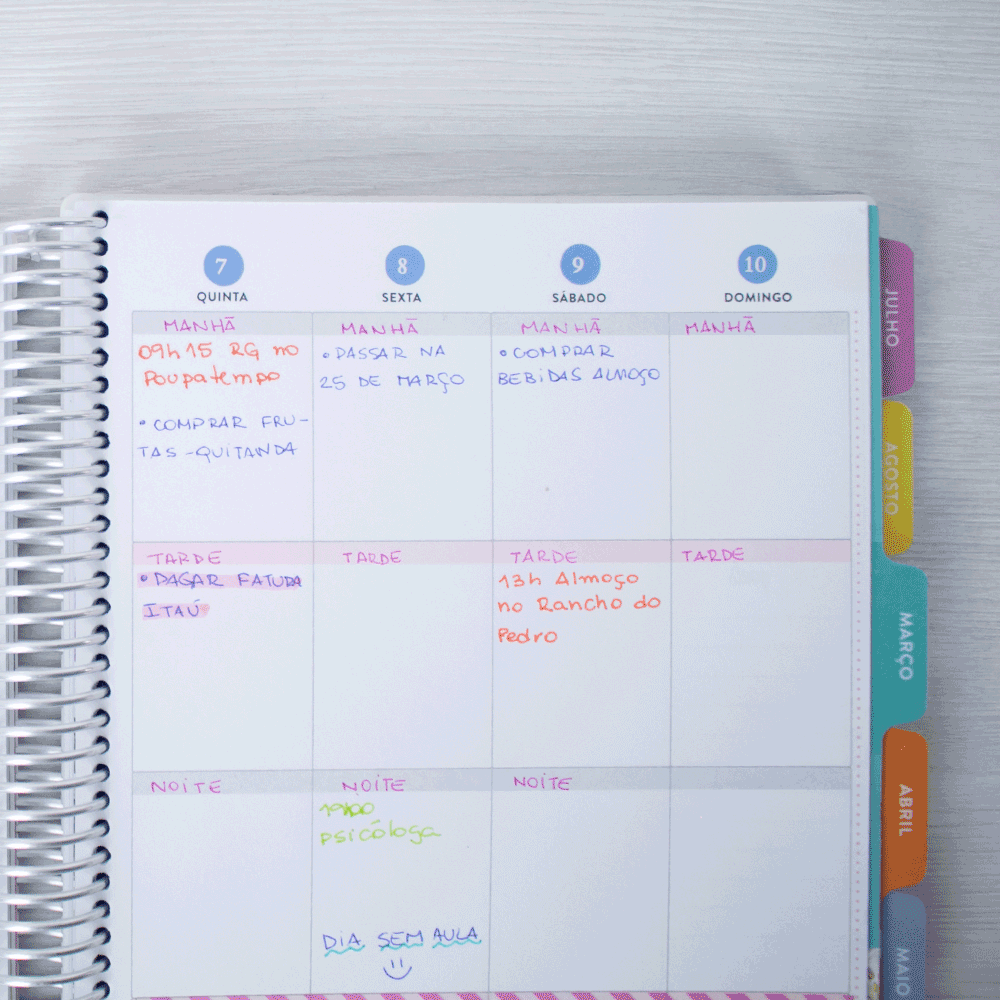 7
QUINTA
MANHÃ
09h15 RG no
Poupatempo
• COMPRAR FRU-
TAS - QUITANDA
TARDE
• PAGAR FATURA
ITAÚ
NOITE
8
SEXTA
MANHÃ
• PASSAR NA
25 DE MARÇO
TARDE
NOITE
19h00
psicóloga
DIA SEM AULA
9
SÁBADO
MANHÃ
• COMPRAR
BEBIDAS ALMOÇO
TARDE
13h Almoço
no Rancho do
Pedro
NOITE
10
DOMINGO
MANHÃ
TARDE
JULHO
AGOSTO
MARÇO
ABRIL
MAIO